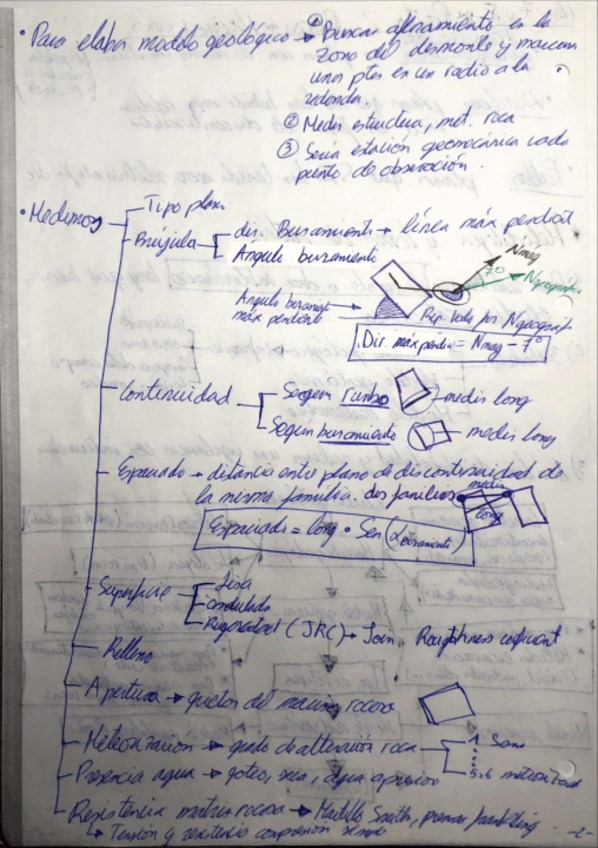 • Para elabor modelo geológico → ① Buscar afloramiento en la
zona del desmonte y marcar
unos ptos en un radio a la
redonda.
② Medir estructura, mat. roca
③ Sería estación geomecánica cada
punto de observación.
• Medimos
Tipo plano
Brújula
dir. Buzamiento → línea máx pendient
Ángulo buzamiento
Nmag
7°
Ngeografic
Ángulo buzamient
máx pendiente
Rep. todo por Ngeográf
Dir. máx pdte = Nmag - 7°
Continuidad
Según rumbo
medir long
Según buzamiento
medir long
Espaciado → distancia entre plano de discontinuidad de
la misma familia. dos familias
medir
long
Espaciado = long · Sen (α buzamiento)
Superficie
lisa
ondulada
Rugosidad (JRC) → Join Roughness coeficient
Relleno
Apertura → grietas del macizo rocoso
Meteorización → grado de alteración roca
1 Sano
5ó6 meteorizad
Presencia agua → goteo, seca, agua a presión
Resistencia matriz rocosa → Martillo Smith,
→ Tensión y resistencia compresión simple
-2-